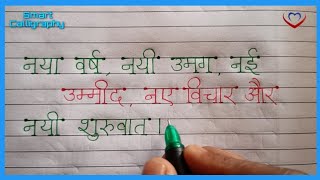 Smart
Calligraphy
नया वर्ष, नयी उमंग, नई
उम्मीद, नए विचार और
नयी शुरुवात।